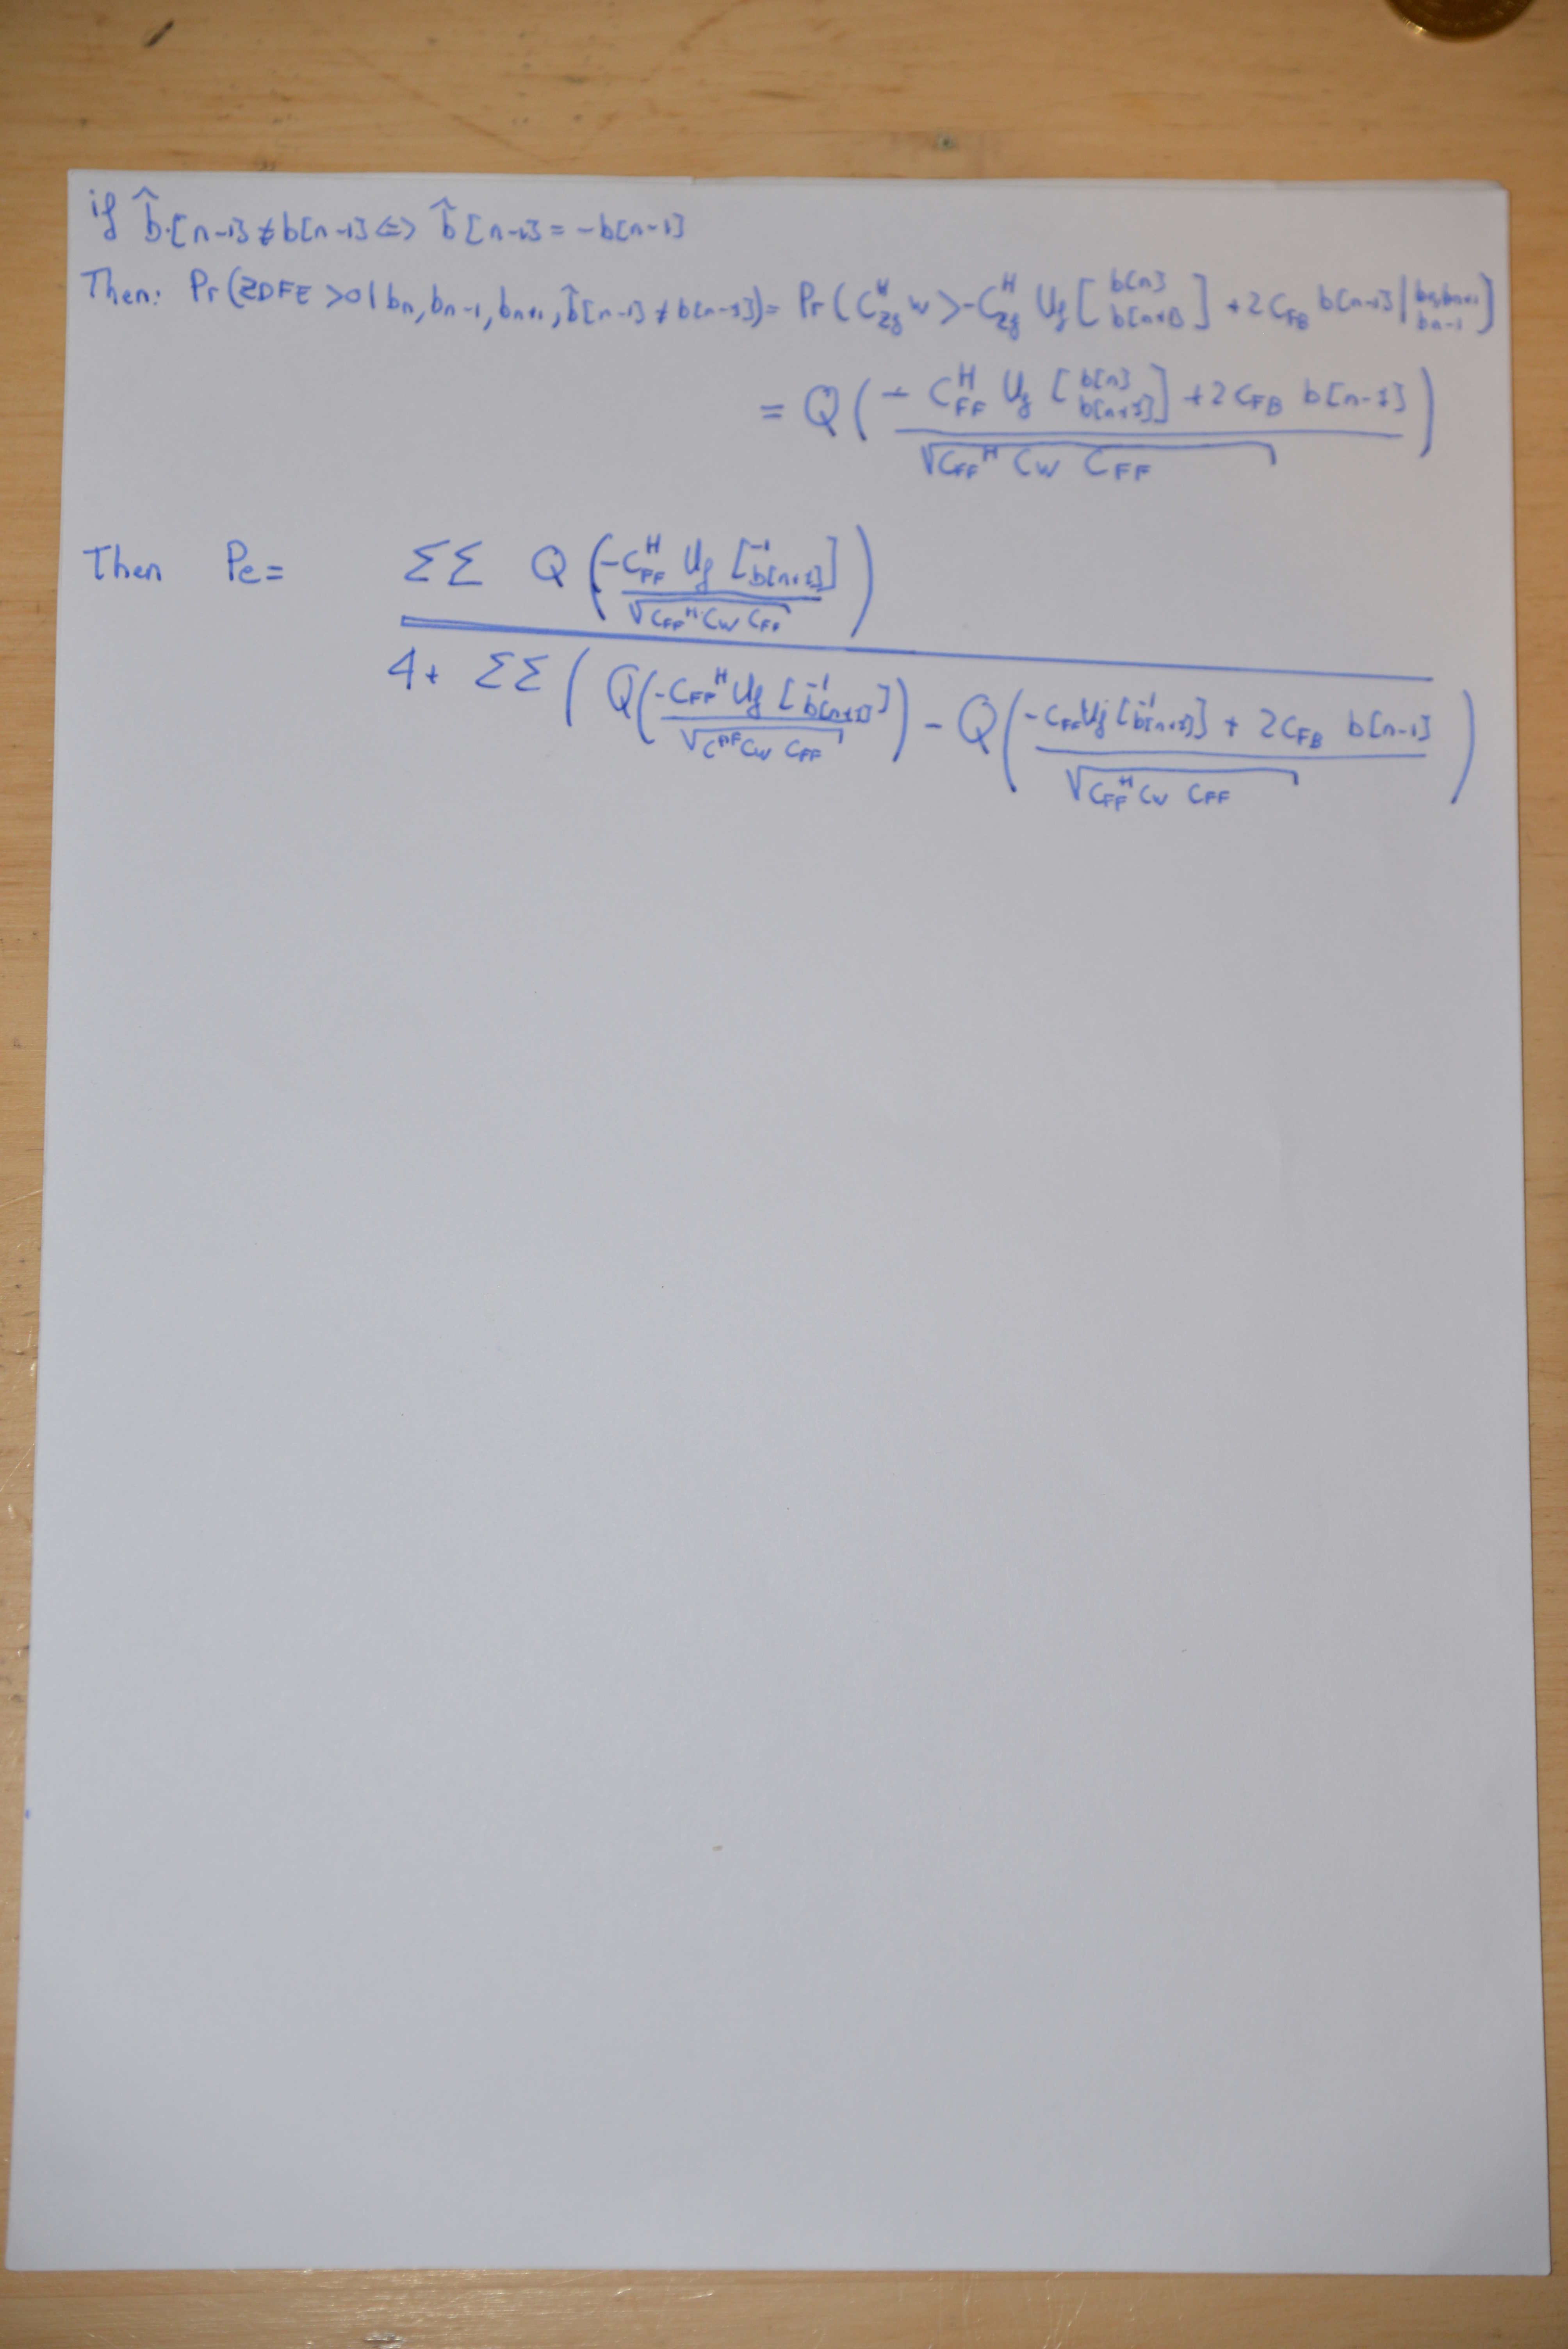 if b̂[n-1] ≠ b[n-1] <=> b̂[n-1] = -b[n-1]
Then: Pr(ZDFE >0 | bn, bn-1, bn+1, b̂[n-1] ≠ b[n-1]) = Pr( C_{zf}^H w > -C_{zf}^H U_f [ b[n] b[n+1] ] + 2 C_{FB} b[n-1] | bn, bn+1 bn-1 )
= Q( - C_{FF}^H U_f [ b[n] b[n+1] ] + 2 C_{FB} b[n-1] / √ C_{FF}^H C_W C_{FF} )
Then Pe = ΣΣ Q( -C_{FF}^H U_f [ -1 b[n+1] ] / √ C_{FF}^H C_W C_{FF} )
4 + ΣΣ ( Q( -C_{FF}^H U_f [ -1 b[n+1] ] / √ C^{HF} C_W C_{FF} ) - Q( -C_{FF} U_f [ -1 b[n+1] ] + 2 C_{FB} b[n-1] / √ C_{FF}^H C_W C_{FF} )